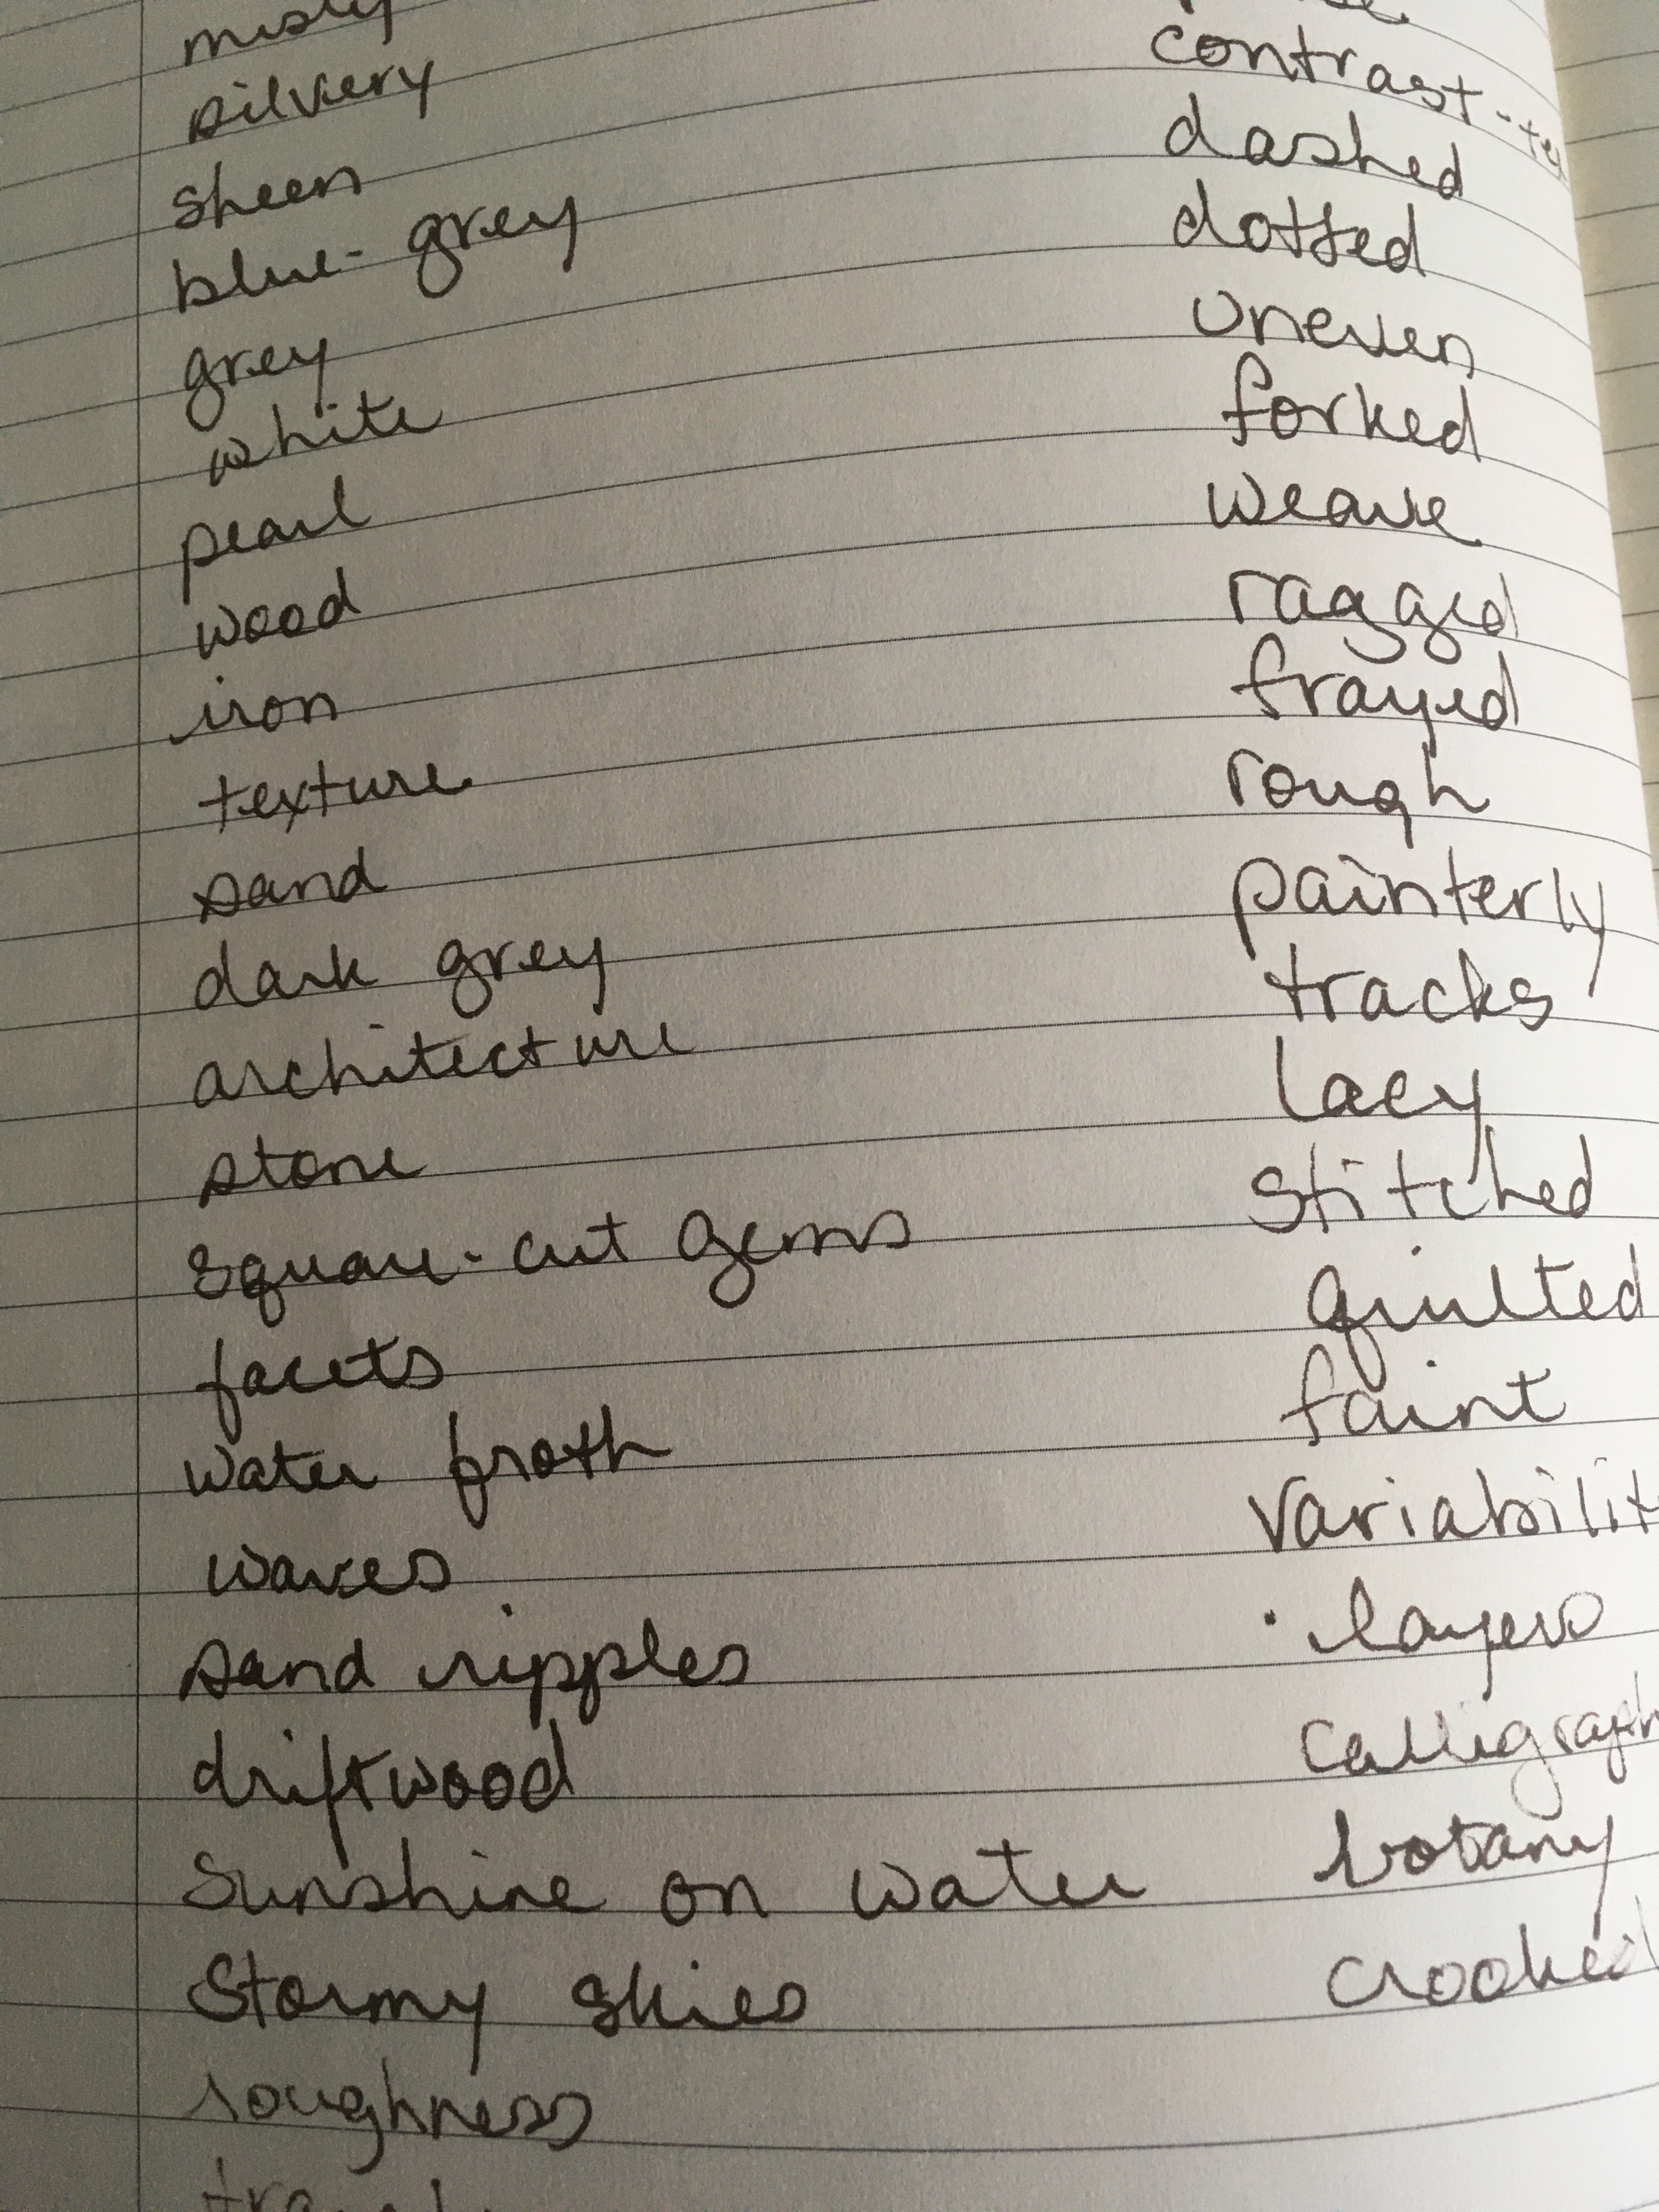 misty
silvery
sheen
blue-grey
grey
white
pearl
wood
iron
texture
sand
dark grey
architecture
stone
square-cut gems
facets
water froth
waves
sand ripples
driftwood
sunshine on water
stormy skies
roughness
contrast-te
dashed
dotted
uneven
forked
weave
ragged
frayed
rough
painterly
tracks
lacy
stitched
quilted
faint
variabilit
· layers
calligraph
botany
crooked